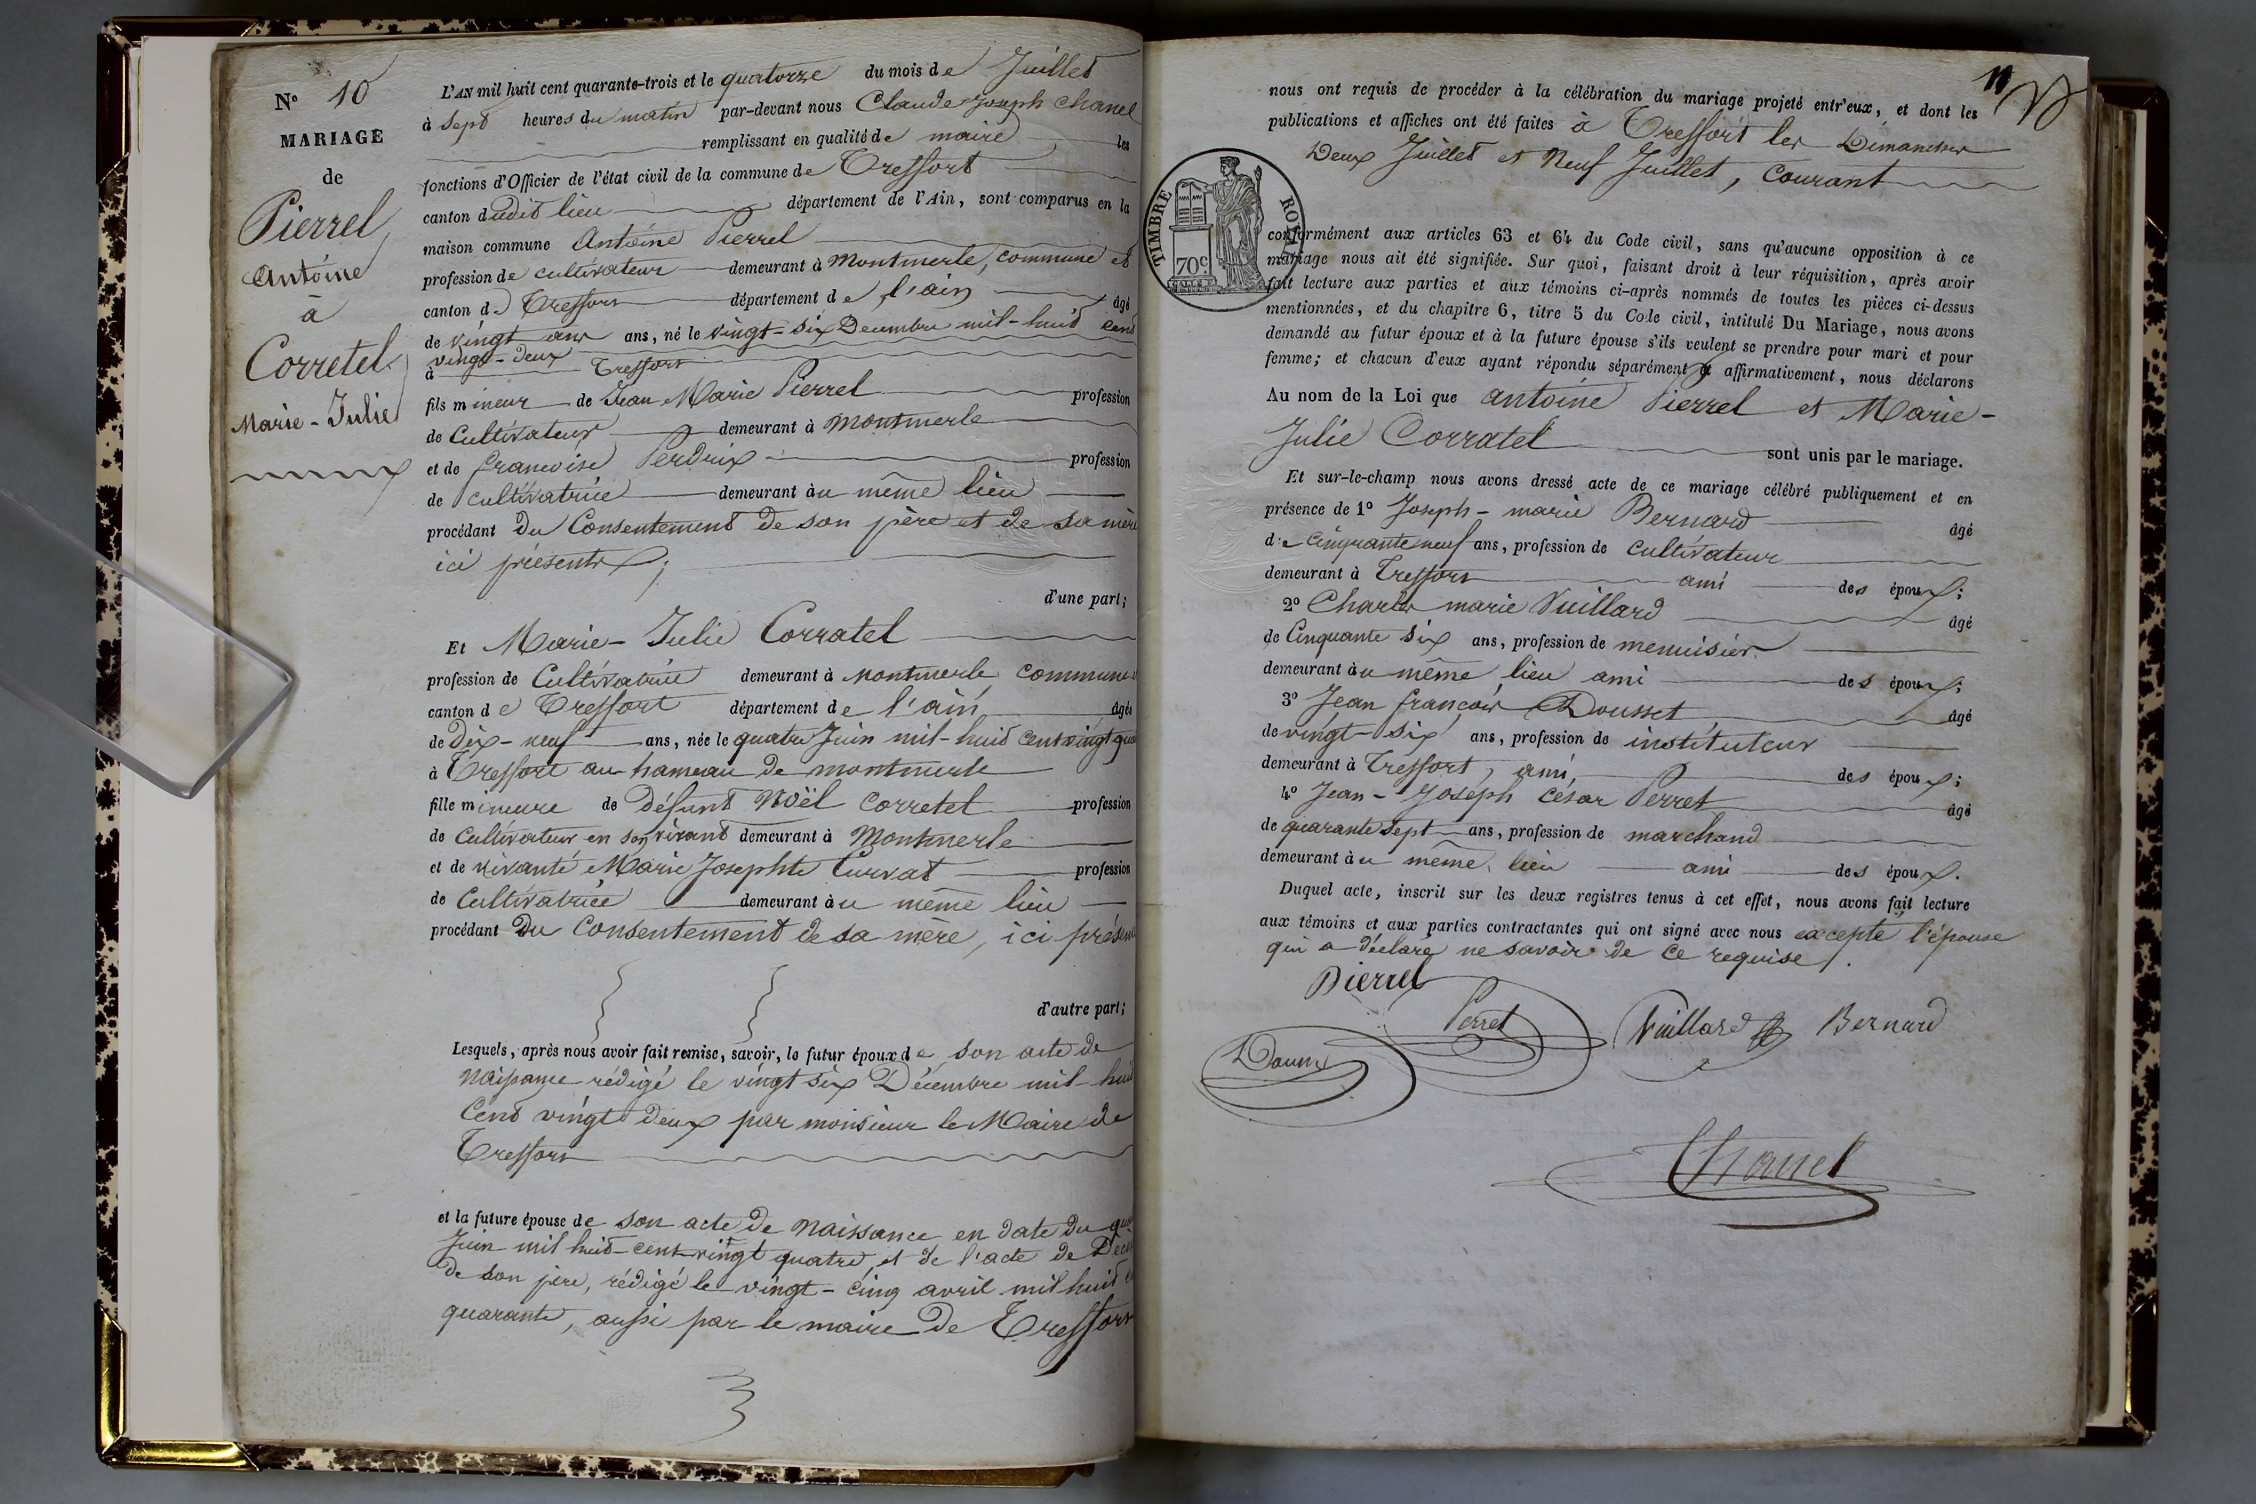 N° 10
MARIAGE
de
Pierrel
Antoine
à
Corretel
Marie-Julie
L'AN mil huit cent quarante-trois et le quatorze du mois de Juillet
à sept heures du matin par-devant nous Claude Joseph Chanel
remplissant en qualité de maire les
fonctions d'Officier de l'état civil de la commune de Treffort
canton dudit lieu département de l'Ain, sont comparus en la
maison commune Antoine Pierrel
profession de cultivateur demeurant à Montmerle, commune et
canton de Treffort département de l'ain âgé
de vingt ans ans, né le vingt-six Decembre mil-huit cent
vingt-deux
à Treffort
fils mineur de Jean Marie Pierrel profession
de Cultivateur demeurant à Montmerle
et de françoise Perdrix profession
de cultivatrice demeurant au même lieu
procédant Du Consentement de son père et de sa mère
ici présents;
d'une part;
Et Marie-Julie Corratel
profession de Cultivatrice demeurant à Montmerle commune
canton de Treffort département de l'ain âgée
de Dix-neuf ans, née le quatre Juin mil-huit cent vingt qua
à Treffort au hameau de montmerle
fille mineure de Défunt Noël Corretel profession
de Cultivateur en son vivant demeurant à Montmerle
et de vivante Marie Josephte Curvat profession
de Cultivatrice demeurant au même lieu
procédant Du Consentement de sa mère, ici présente
d'autre part;
Lesquels, après nous avoir fait remise, savoir, le futur époux de son acte de
naissance rédigé le vingt six Décembre mil-huit
Cent vingt deux par monsieur le Maire de
Treffort
et la future épouse de son acte de naissance en date du qua
Juin mil huit-cent vingt quatre, et de l'acte de Décès
de son père, rédigé le vingt-cinq avril mil huit c
quarante, aussi par le maire de Treffort
11
nous ont requis de procéder à la célébration du mariage projeté entr'eux, et dont les
publications et affiches ont été faites à Treffort les Dimanches
Deux Juillet et Neuf Juillet, Courant
TIMBRE ROYAL
70c
conformément aux articles 63 et 64 du Code civil, sans qu'aucune opposition à ce
mariage nous ait été signifiée. Sur quoi, faisant droit à leur réquisition, après avoir
fait lecture aux parties et aux témoins ci-après nommés de toutes les pièces ci-dessus
mentionnées, et du chapitre 6, titre 5 du Code civil, intitulé Du Mariage, nous avons
demandé au futur époux et à la future épouse s'ils veulent se prendre pour mari et pour
femme; et chacun d'eux ayant répondu séparément et affirmativement, nous déclarons
Au nom de la Loi que antoine Pierrel et Marie-
Julie Corratel sont unis par le mariage.
Et sur-le-champ nous avons dressé acte de ce mariage célébré publiquement et en
présence de 1° Joseph-marie Bernard âgé
de cinquante neuf ans, profession de cultivateur
demeurant à Treffort ami des époux;
2° Charles marie Vuillard âgé
de Cinquante six ans, profession de menuisier
demeurant au même lieu ami des époux;
3° Jean françois Dousset âgé
de vingt-six ans, profession de instituteur
demeurant à Treffort, ami, des époux;
4° Jean-Joseph César Perret âgé
de quarante sept ans, profession de marchand
demeurant au même lieu ami des époux.
Duquel acte, inscrit sur les deux registres tenus à cet effet, nous avons fait lecture
aux témoins et aux parties contractantes qui ont signé avec nous excepté l'épouse
qui a déclaré ne savoir de ce requise.
Pierrel
Perret Vuillard Bernard
Chanel